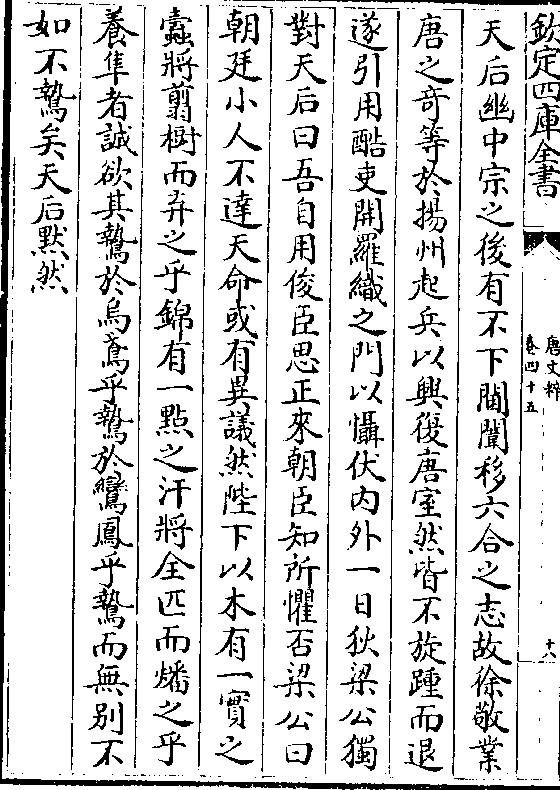 欽定四庫全書
唐文粹
卷四十五
十八
天后幽中宗之後有不下閫闥移六合之志故徐敬業
唐之奇等於揚州起兵以興復唐室然皆不旋踵而退
遂引用酷吏開羅織之門以懾伏内外一日狄梁公獨
對天后曰吾自用俊臣思正來朝臣知所懼否梁公曰
朝廷小人不達天命或有異議然陛下以木有一實之
蠹將翦樹而弃之乎錦有一點之汙將全匹而燔之乎
養隼者誠欲其鷙於烏鳶乎鷙於鸞鳳乎鷙而無别不
如不鷙矣天后默然